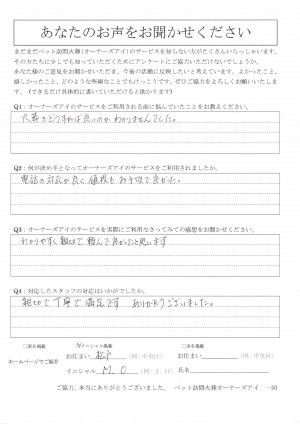 あなたのお声をお聞かせください
まだまだペット訪問火葬(オーナーズアイ)のサービスを知らない方がたくさんいらっしゃいます。
その方たちに少しでも知っていただくためにアンケートにご協力いただけないでしょうか。
あなた様のご意見をお聞かせいただき、今後の活動に反映したいと考えています。よかったこと、
感しかったこと、どのような些細なことでもけっこうです。ぜひご協力をよろしくお願いいたします。
(できるだけ具体的に書いていただけると助かります)
Q1:オーナーズアイのサービスをご利用される前に悩んでいたことをお教えください。
火葬をどうすれば良いのか、わかりませんでした。
Q2:何が決め手となってオーナーズアイのサービスをご利用されましたか。
電話の対応が良く、値段もお手頃で良かった。
Q3:オーナーズアイのサービスを実際にご利用なさってみての感想をお聞かせください。
わかりやすく親切で頼んで良かったと思います
Q4:対応したスタッフの対応はいかがでしたか。
親切で丁寧で満足です ありがとうございました。
□実名掲載 イニシャル掲載 □実名掲載
ホームページでご紹介 お住まい 松戸 (例:中央区) お住まい (例:中央区)
イニシャル M.O (例:J.H) 氏名
ご協力、本当にありがとうございました。 ペット訪問火葬オーナーズアイ 一同